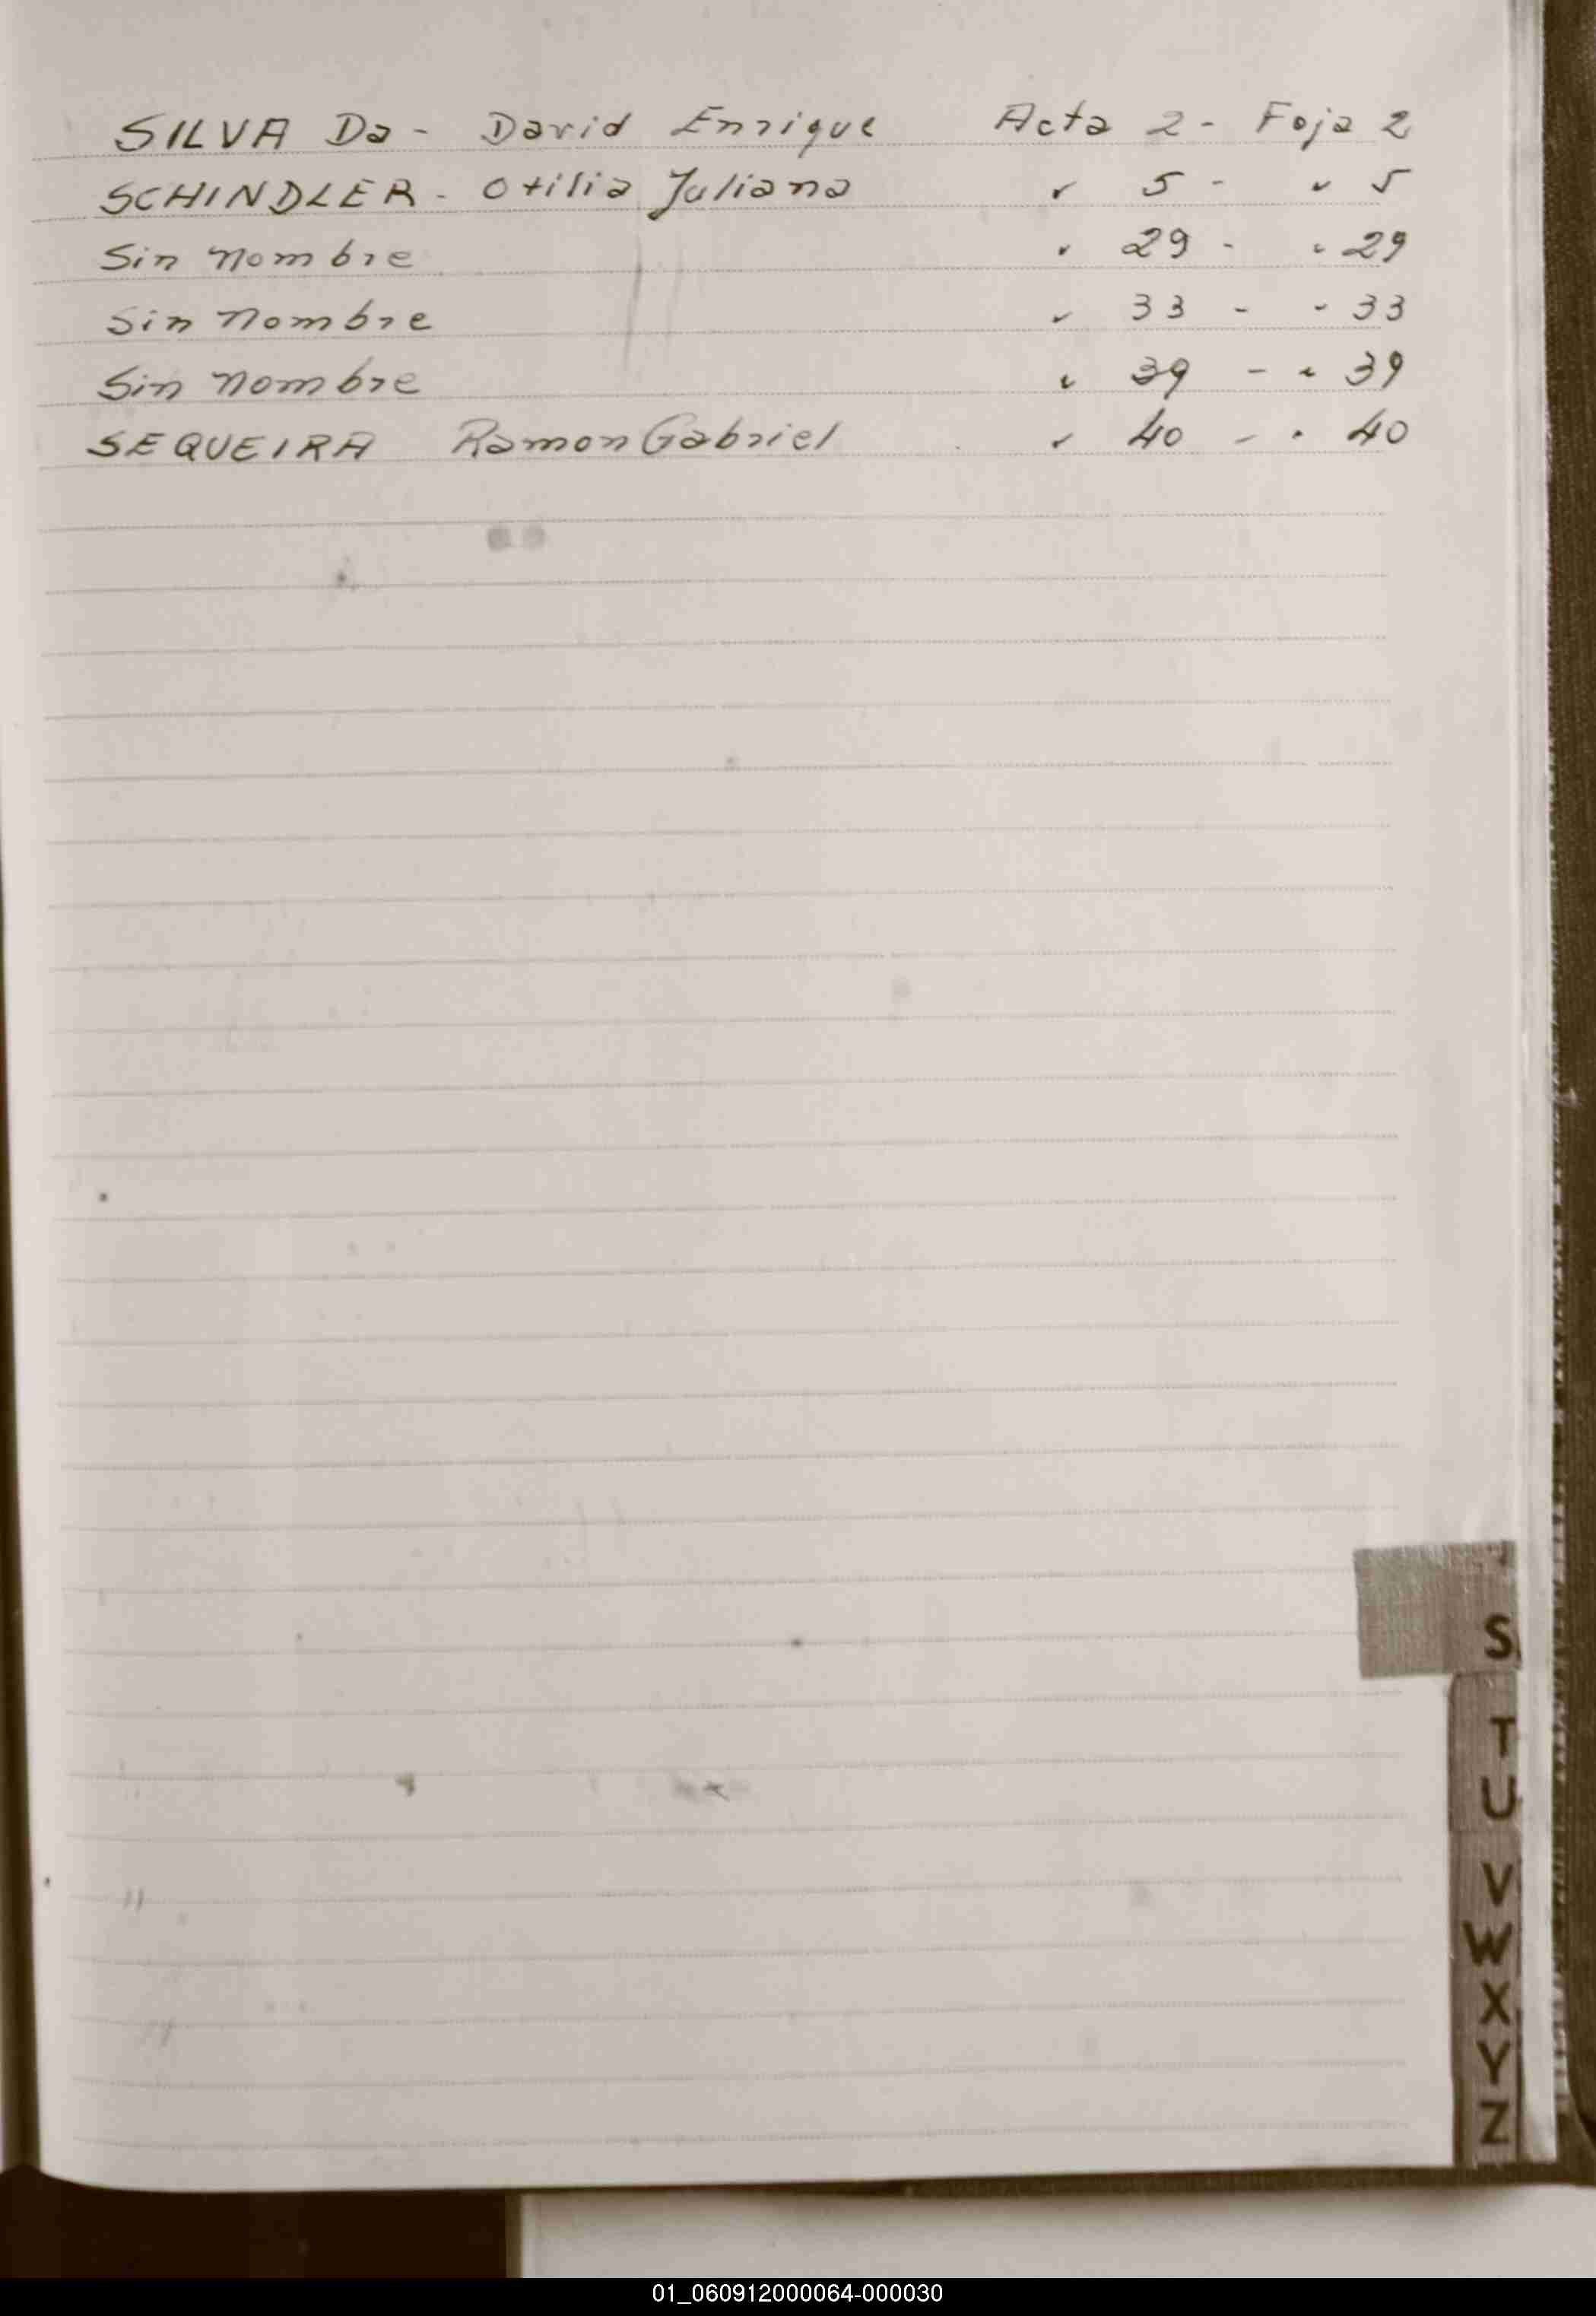 SILVA Da - David Enrique Acta 2 - Foja 2
SCHINDLER - Otilia Juliana " 5 - " 5
Sin Nombre " 29 - " 29
Sin Nombre " 33 - " 33
Sin Nombre " 39 - " 39
SEQUEIRA Ramon Gabriel " 40 - " 40
S
T
U
V
W
X
Y
Z
01_060912000064-000030